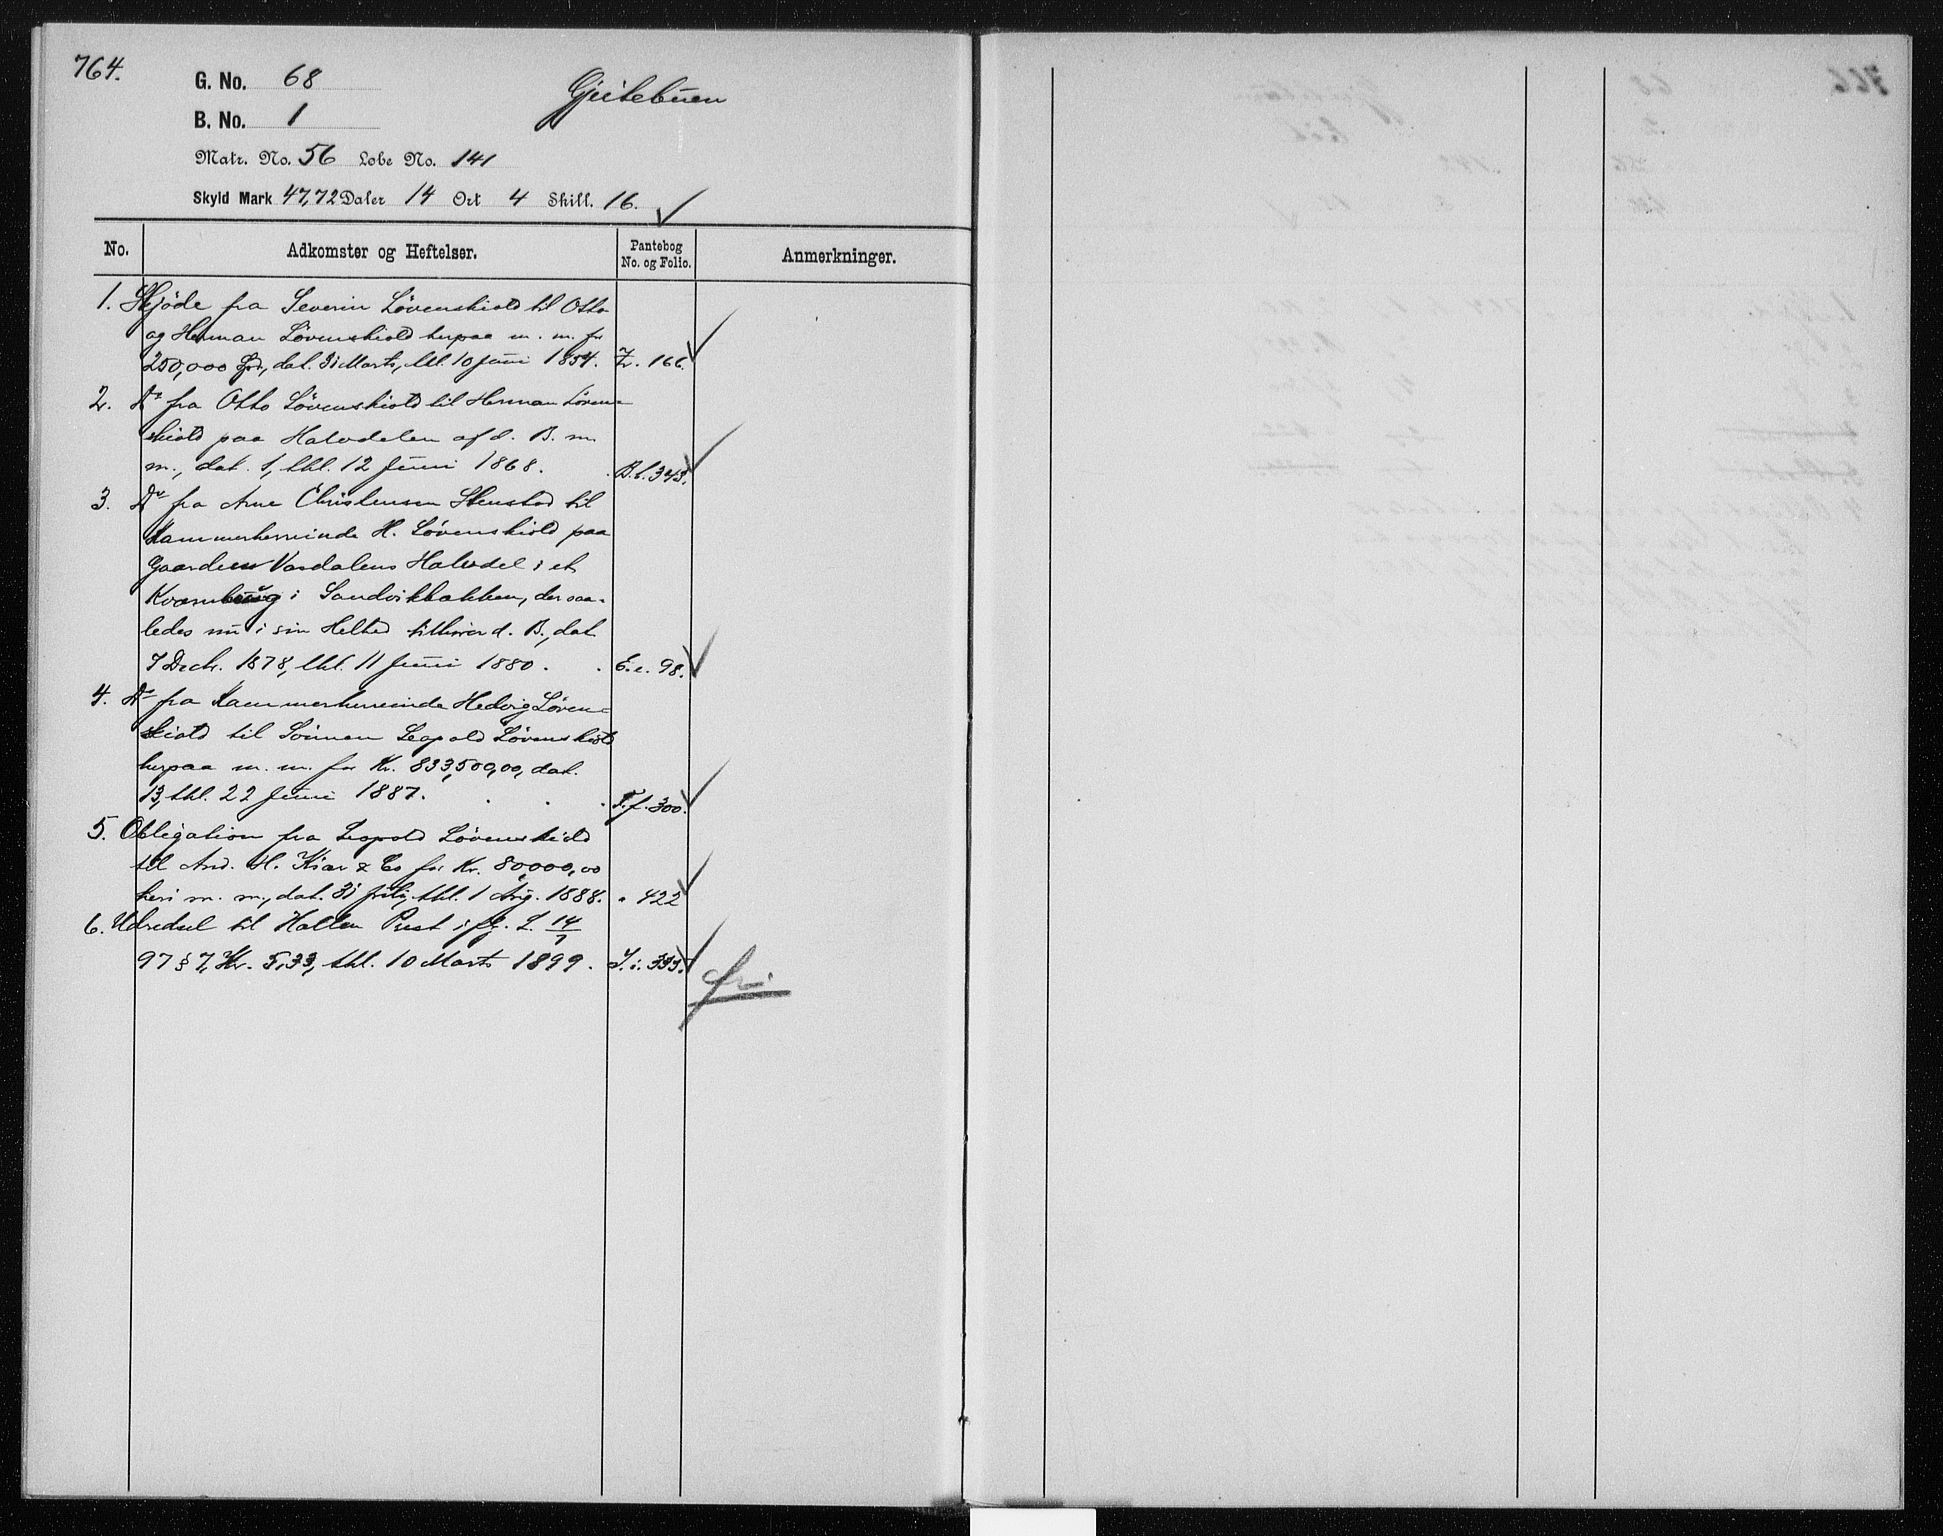 764.
G. No. 68 Gjeitebuen
B. No. 1
Matr. No. 56 Løbe No. 141
Skyld Mark 47,72 Daler 14 Ort 4 Skill. 16.
No. Adkomster og Heftelser. Pantebog No. og Folio. Anmerkninger.
1. Skjöde fra Severin Lövenskiold til Otto
og Herman Lövenskiold herpaa m. m. for
250,000 Spd., dat. 31 Marts, thl. 10 Juni 1854. Z. 166.
2. Do fra Otto Lövenskiold til Herman Löven-
skiold paa Halvdelen af d. B. m.
m., dat. 1, thl. 12 Juni 1868. B.b. 343.
3. Do fra Arne Christensen Stenstad til
Kammerherreinde H. Løvenskiold paa
Gaarden Vardalens Halvdel i et
i Sandviksbækken, der saa-
ledes nu i sin Helhed tilhører d. B., dat.
7 Decbr. 1878, thl. 11 Juni 1880. E.e. 98.
4. Do fra Kammerherreinde Hedvig Løven-
skiold til Sönnen Leopold Lövenskiold
herpaa m. m. for Kr. 833,500,00, dat.
13, thl. 22 Juni 1887. F.f. 300.
5. Obligation fra Leopold Lövenskiold
til And. H. Kiær & Co for Kr. 80,000,00
heri m. m., dat. 31 Juli, thl. 1 Aug. 1888. " 422
6. Udredsel til Hallen Prest ifg. L. 14/7
97 § 7, Kr. 5,33, thl. 10 Marts 1899. I.i. 333.
fri